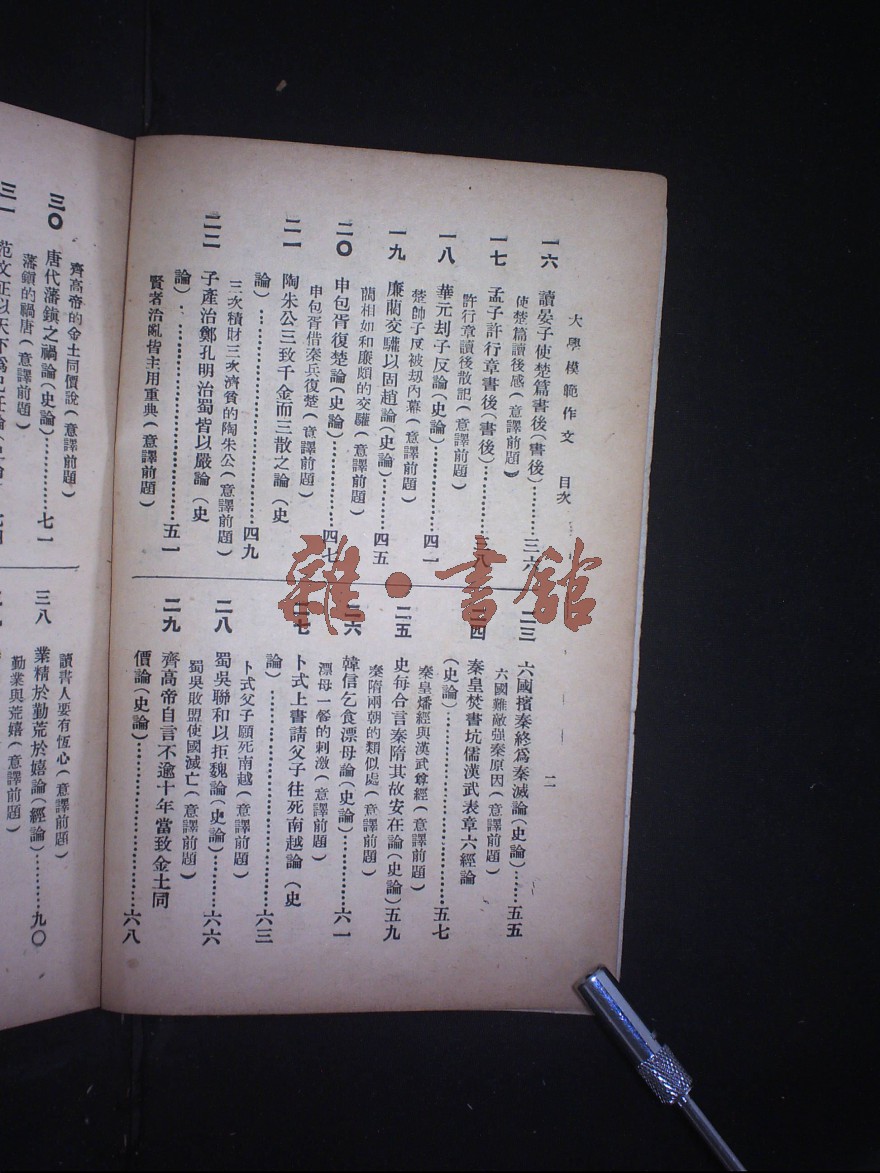 大學模範作文 目次 二
一六 讀晏子使楚篇書後(書後)………三六
使楚篇讀後感(意譯前題)
一七 孟子許行章書後(書後)………三八
許行章讀後散記(意譯前題)
一八 華元刦子反論(史論)………四一
楚帥子反被刦內幕(意譯前題)
一九 廉藺交驩以固趙論(史論)………四五
藺相如和廉頗的交驩(意譯前題)
二〇 申包胥復楚論(史論)………四七
申包胥借秦兵復楚(意譯前題)
二一 陶朱公三致千金而三散之論(史
論)………四九
三次積財三次濟貧的陶朱公(意譯前題)
二二 子產治鄭孔明治蜀皆以嚴論(史
論)………五一
賢者治亂皆主用重典(意譯前題)
二三 六國擯秦終爲秦滅論(史論)……五五
六國難敵強秦原因(意譯前題)
二四 秦皇焚書坑儒漢武表章六經論
(史論)………五七
秦皇燔經與漢武尊經(意譯前題)
二五 史每合言秦隋其故安在論(史論)五九
秦隋兩朝的類似處(意譯前題)
二六 韓信乞食漂母論(史論)………六一
漂母一餐的刺激(意譯前題)
二七 卜式上書請父子往死南越論(史
論)………六三
卜式父子願死南越(意譯前題)
二八 蜀吳聯和以拒魏論(史論)………六六
蜀吳敗盟使國滅亡(意譯前題)
二九 齊高帝自言不逾十年當致金土同
價論(史論)………六八
齊高帝的金土同價說(意譯前題)
三〇 唐代藩鎭之禍論(史論)………七一
藩鎭的禍唐(意譯前題)
三一 范文正以天下爲己任論
讀書人要有恆心(意譯前題)
三八 業精於勤荒於嬉論(經論)………九〇
勤業與荒嬉(意譯前題)
雜·書館